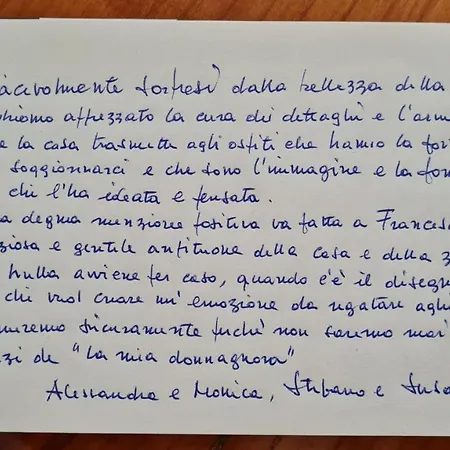 iacevolmente sorpresi dalla bellezza della
bbiamo apprezzato la cura dei dettagli e l'arm
e la casa trasmette agli ospiti che hanno la for
soggiornarci e che sono l'immagine e la
chi l'ha ideata e pensata.
a degna menzione positiva va fatta a Frances
ziosa e gentile anfitrione della casa e della z
nulla avviene per caso, quando c'è il disegn
chi vuol creare un'emozione da regalare agli
neremo sicuramente perché non saremo mai
zi de "La mia donnagnora"
Alessandra e Monica, Stefano e Susa